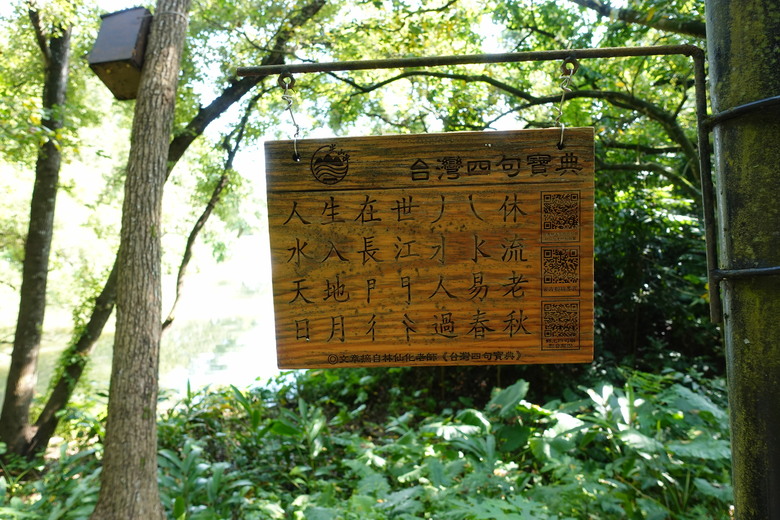 台灣四句寶典
人生在世丿乀休
水入長江流
天地人易老
日月彳過春秋
◎文章摘自林仙化老師《台灣四句寶典》